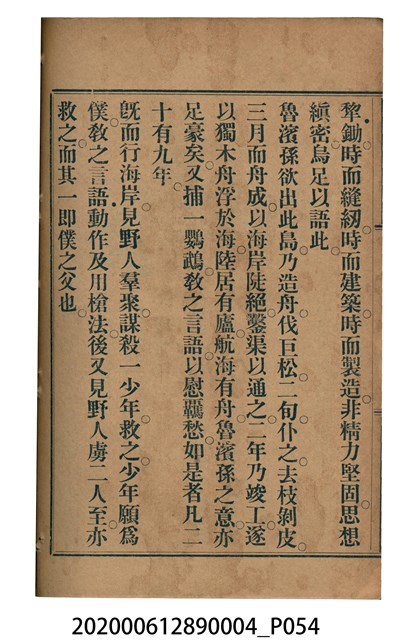 犂鋤時而縫紉時而建築時而製造非精力堅固思想
縝密烏足以語此
魯濱孫欲出此島乃造舟伐巨松二旬仆之去枝剝皮
三月而舟成以海岸陡絕鑿渠以通之二年乃竣工遂
以獨木舟浮於海陸居有廬航海有舟魯濱孫之意亦
足豪矣又捕一鸚鵡敎之言語以慰羈愁如是者凡二
十有九年
旣而行海岸見野人羣聚謀殺一少年救之少年願爲
僕敎之言語動作及用槍法後又見野人虜二人至亦
救之而其一即僕之父也
202000612890004_P054